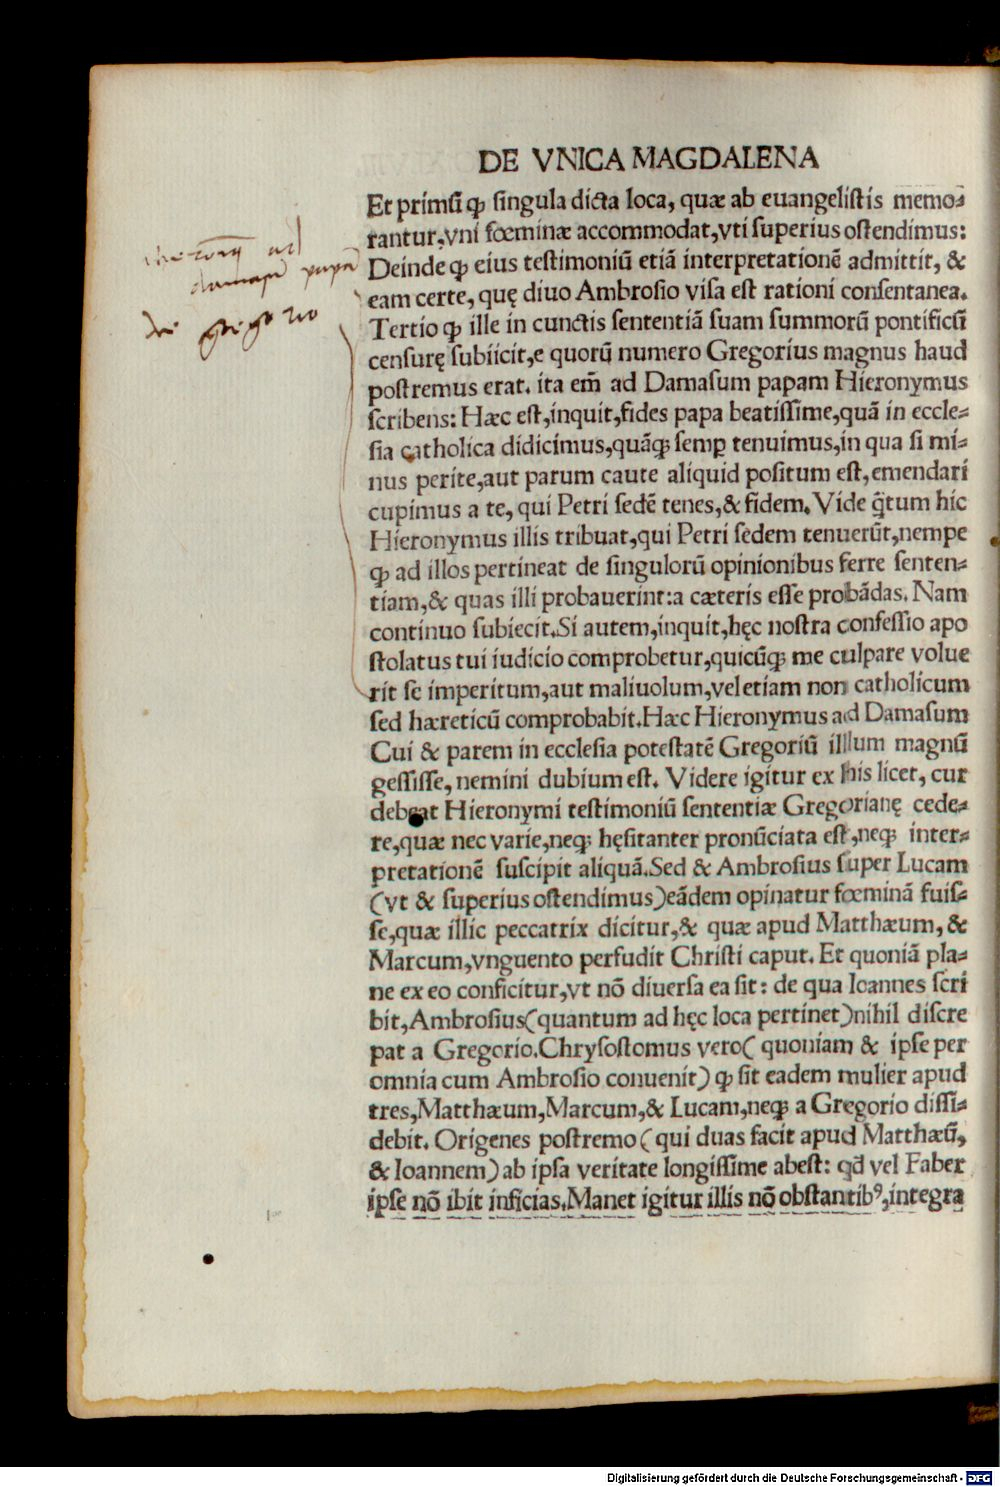 DE VNICA MAGDALENA
Et primũ ꝙ ſingula dicta loca, quæ ab euangeliſtis memo⸗
rantur, vni fœminæ accommodat, vti ſuperius oſtendimus:
Deinde ꝙ eius teſtimoniũ etiã interpretationẽ admittit, &
eam certe, quę diuo Ambroſio viſa eſt rationi conſentanea.
Tertio ꝙ ille in cunctis ſententiã ſuam ſummorũ pontificũ
cenſurę ſubiicit, e quorũ numero Gregorius magnus haud
poſtremus erat. ita em̃ ad Damaſum papam Hieronymus
ſcribens: Hæc eſt, inquit, fides papa beatiſſime, quã in eccle⸗
ſia catholica didicimus, quãqꝫ ſemꝑ tenuimus, in qua ſi mi⸗
nus perite, aut parum caute aliquid poſitum eſt, emendari
cupimus a te, qui Petri ſedẽ tenes, & fidem. Vide q̃tum hic
Hieronymus illis tribuat, qui Petri ſedem tenuerũt, nempe
ꝙ ad illos pertineat de ſingulorũ opinionibus ferre ſenten⸗
tiam, & quas illi probauerint: a cæteris eſſe probãdas. Nam
continuo ſubiecit. Si autem, inquit, hęc noſtra confeſſio apo
ſtolatus tui iudicio comprobetur, quicũqꝫ me culpare volue
rit ſe imperitum, aut maliuolum, vel etiam non catholicum
ſed hæreticũ comprobabit. Hæc Hieronymus ad Damaſum
Cui & parem in eccleſia poteſtatẽ Gregoriũ illum magnũ
geſſiſſe, nemini dubium eſt. Videre igitur ex his licet, cur
debeat Hieronymi teſtimoniũ ſententiæ Gregorianę cede⸗
re, quæ nec varie, neqꝫ hęſitanter pronũciata eſt, neqꝫ inter⸗
pretationẽ ſuſcipit aliquã. Sed & Ambroſius ſuper Lucam
(vt & ſuperius oſtendimus) eãdem opinatur fœminã fuiſ⸗
ſe, quæ illic peccatrix dicitur, & quæ apud Matthæum, &
Marcum, vnguento perfudit Chriſti caput. Et quoniã pla⸗
ne ex eo conficitur, vt nõ diuerſa ea ſit: de qua Ioannes ſcri
bit, Ambroſius (quantum ad hęc loca pertinet) nihil diſcre
pat a Gregorio. Chryſoſtomus vero (quoniam & ipſe per
omnia cum Ambroſio conuenit) ꝙ ſit eadem mulier apud
tres, Matthæum, Marcum, & Lucam, neqꝫ a Gregorio diſſi⸗
debit. Origenes poſtremo (qui duas facit apud Matthæũ,
& Ioannem) ab ipſa veritate longiſſime abeſt: qđ vel Faber
ipſe nõ ibit inficias. Manet igitur illis nõ obſtantibꝰ, integra
ad
damasū papā
de gregorio
Digitalisierung gefördert durch die Deutsche Forschungsgemeinschaft - DFG